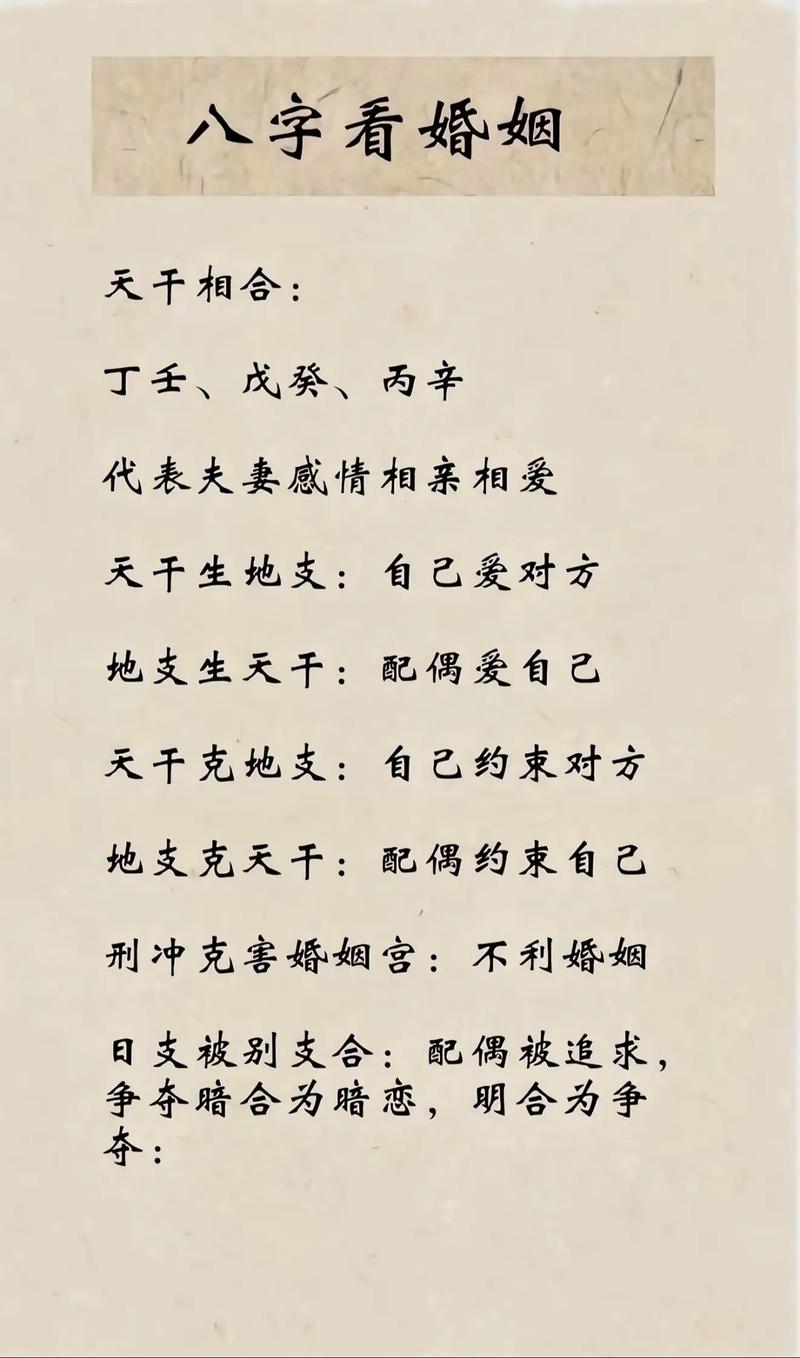 八字看婚姻
天干相合：
丁壬、戊癸、丙辛
代表夫妻感情相亲相爱
天干生地支：自己爱对方
地支生天干：配偶爱自己
天干克地支：自己约束对方
地支克天干：配偶约束自己
刑冲克害婚姻宫：不利婚姻
日支被别支合：配偶被追求，
争夺暗合为暗恋，明合为争
夺：